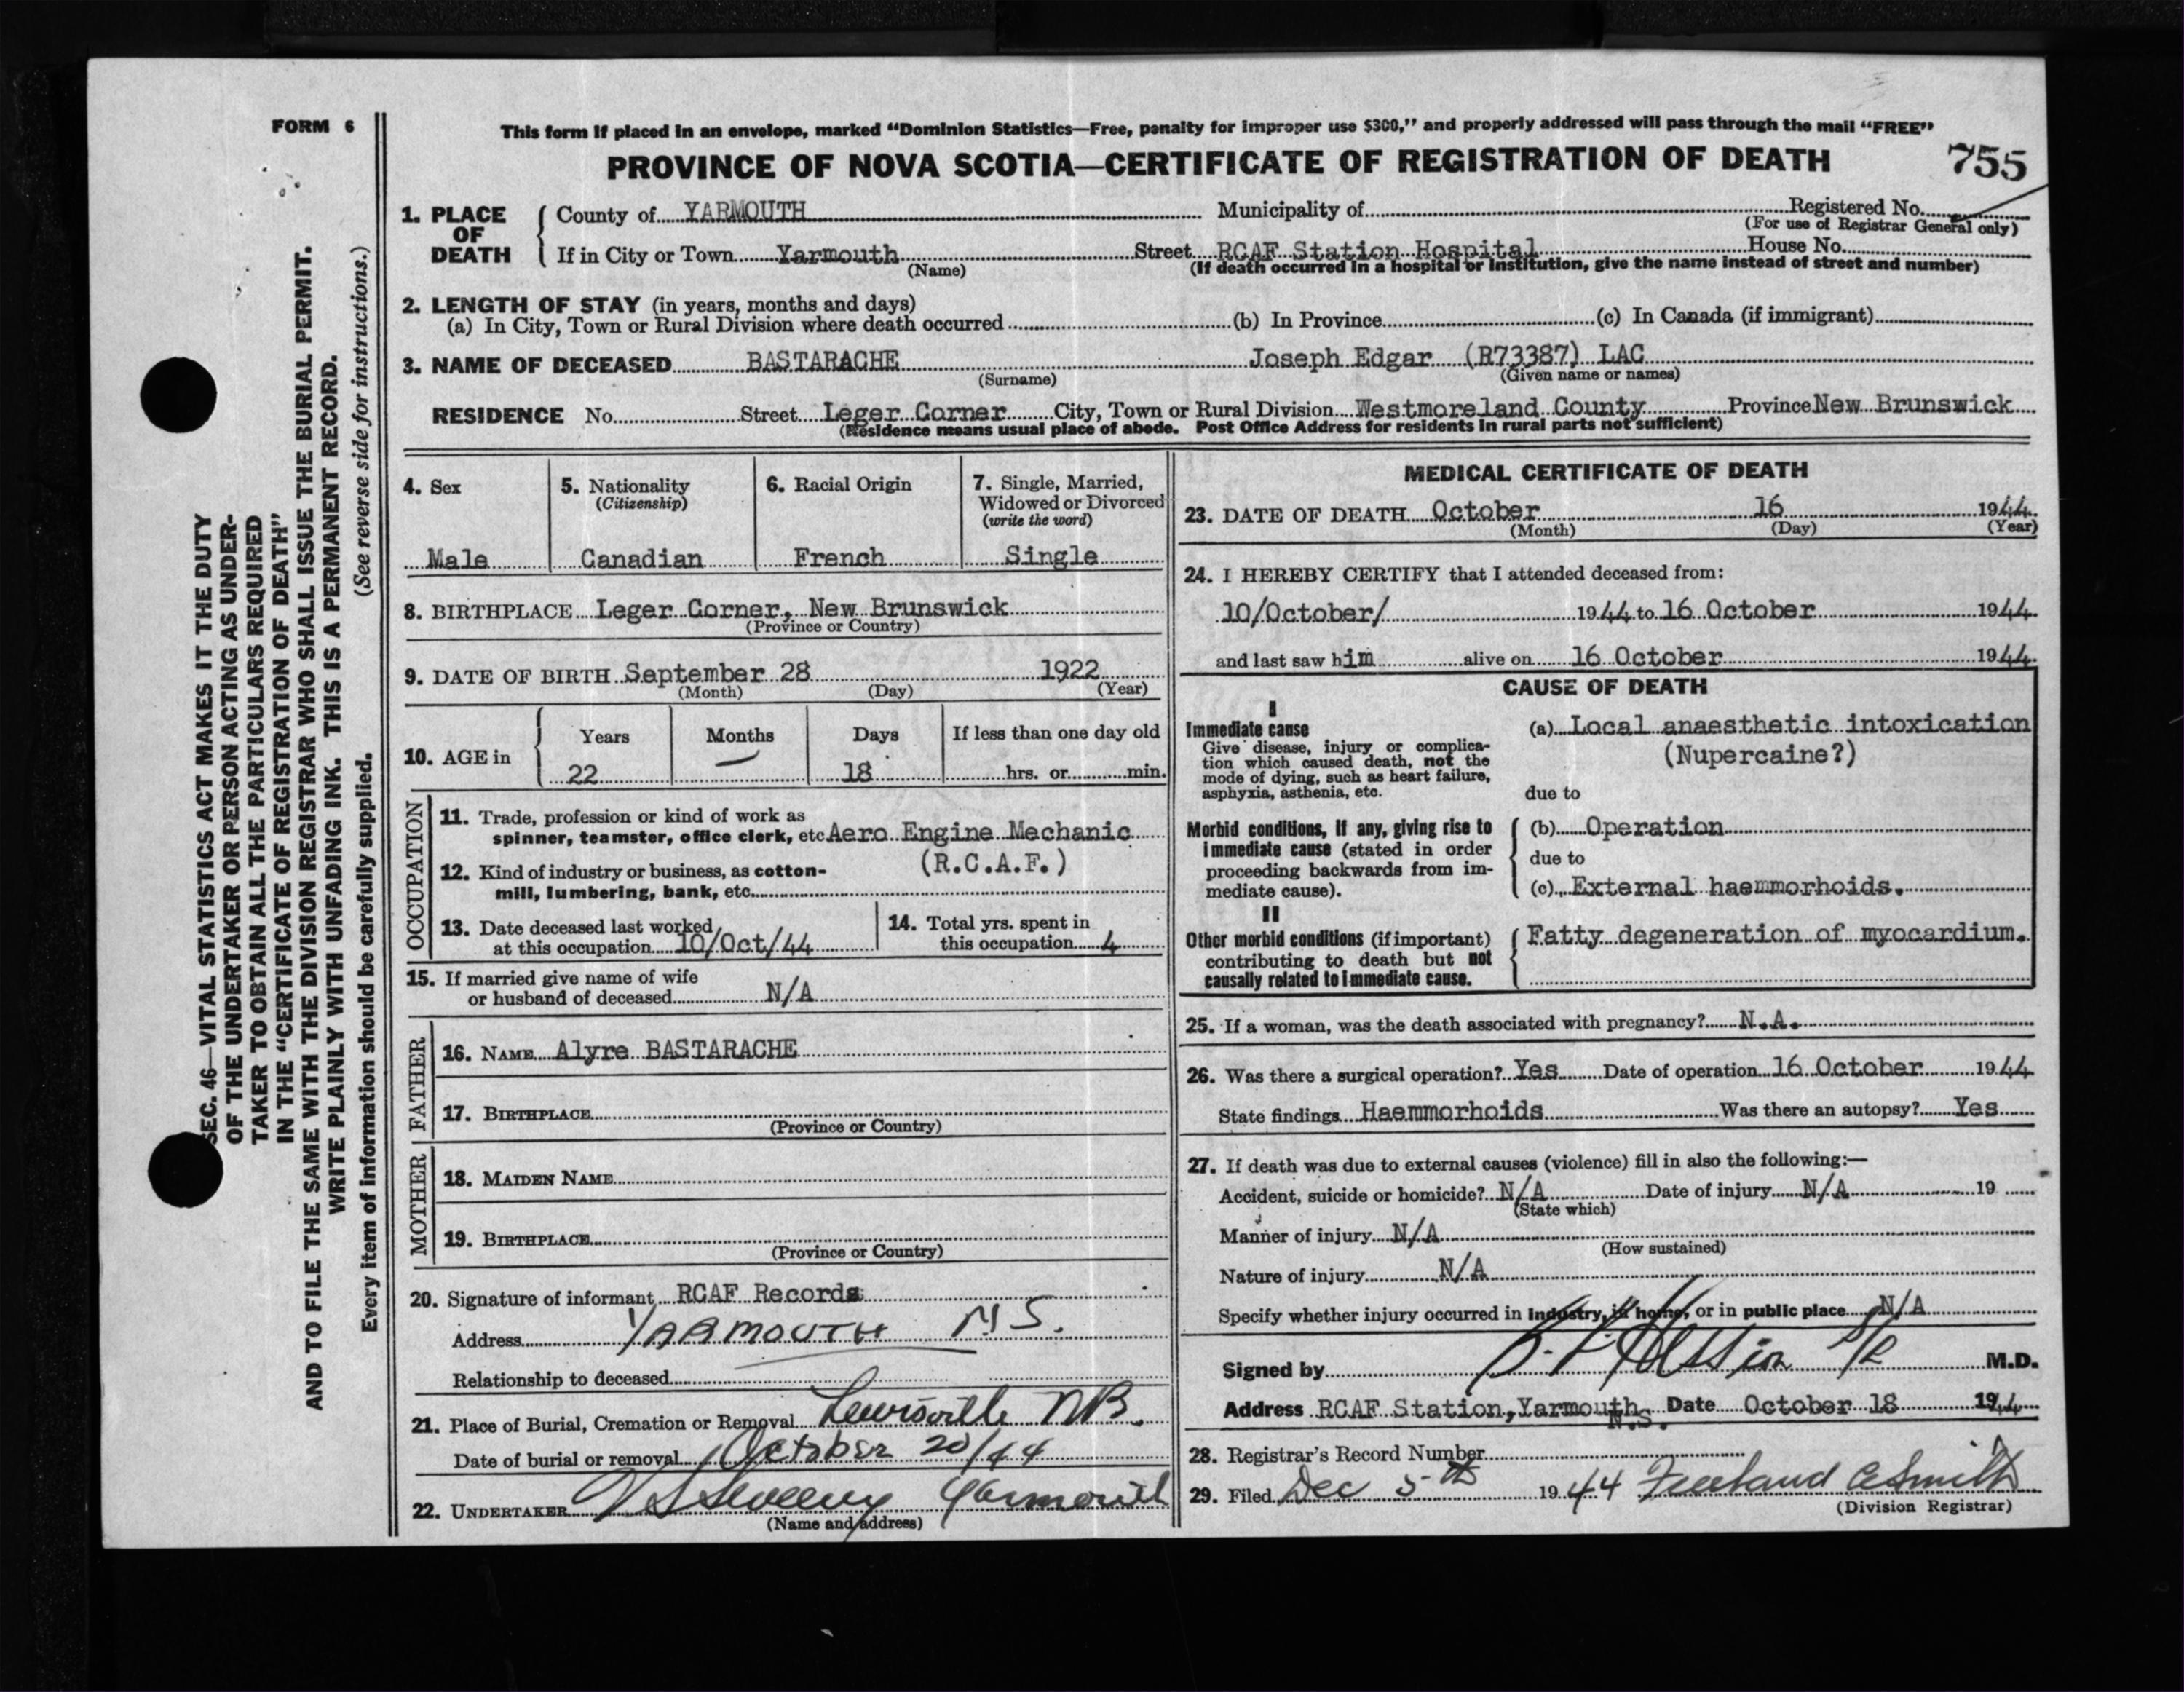 FORM 6
This form if placed in an envelope, marked “Dominion Statistics—Free, penalty for improper use $300,” and properly addressed will pass through the mail “FREE”
PROVINCE OF NOVA SCOTIA—CERTIFICATE OF REGISTRATION OF DEATH 755
SEC. 46—VITAL STATISTICS ACT MAKES IT THE DUTY
OF THE UNDERTAKER OR PERSON ACTING AS UNDER-
TAKER TO OBTAIN ALL THE PARTICULARS REQUIRED
IN THE “CERTIFICATE OF REGISTRATION OF DEATH”
AND TO FILE THE SAME WITH THE DIVISION REGISTRAR WHO SHALL ISSUE THE BURIAL PERMIT.
WRITE PLAINLY WITH UNFADING INK. THIS IS A PERMANENT RECORD.
Every item of information should be carefully supplied. (See reverse side for instructions.)
1. PLACE OF DEATH
County of YARMOUTH Municipality of Registered No.
(For use of Registrar General only)
If in City or Town Yarmouth Street RCAF Station Hospital House No.
(Name) (If death occurred in a hospital or institution, give the name instead of street and number)
2. LENGTH OF STAY (in years, months and days)
(a) In City, Town or Rural Division where death occurred (b) In Province (c) In Canada (if immigrant)
3. NAME OF DECEASED BASTARACHE Joseph Edgar (R73387) LAC
(Surname) (Given name or names)
RESIDENCE No. Street Leger Corner City, Town or Rural Division Westmoreland County Province New Brunswick
(Residence means usual place of abode. Post Office Address for residents in rural parts not sufficient)
4. Sex
Male
5. Nationality
(Citizenship)
Canadian
6. Racial Origin
French
7. Single, Married,
Widowed or Divorced
(write the word)
Single
8. BIRTHPLACE Leger Corner, New Brunswick
(Province or Country)
9. DATE OF BIRTH September 28 1922
(Month) (Day) (Year)
10. AGE in
Years Months Days If less than one day old
22 — 18 hrs. or min.
OCCUPATION
11. Trade, profession or kind of work as
spinner, teamster, office clerk, etc. Aero Engine Mechanic
12. Kind of industry or business, as cotton- (R.C.A.F.)
mill, lumbering, bank, etc.
13. Date deceased last worked
at this occupation 10/Oct/44
14. Total yrs. spent in
this occupation 4
15. If married give name of wife
or husband of deceased N/A
FATHER
16. NAME Alyre BASTARACHE
17. BIRTHPLACE
(Province or Country)
MOTHER
18. MAIDEN NAME
19. BIRTHPLACE
(Province or Country)
20. Signature of informant RCAF Records
Address YARMOUTH N.S.
Relationship to deceased
21. Place of Burial, Cremation or Removal Lewisville NB.
Date of burial or removal October 20/44
22. UNDERTAKER V S Sweeny Yarmouth
(Name and address)
MEDICAL CERTIFICATE OF DEATH
23. DATE OF DEATH October 16 1944
(Month) (Day) (Year)
24. I HEREBY CERTIFY that I attended deceased from:
10/October/ 1944 to 16 October 1944
and last saw him alive on 16 October 1944
CAUSE OF DEATH
I
Immediate cause
Give disease, injury or complica-
tion which caused death, not the
mode of dying, such as heart failure,
asphyxia, asthenia, etc.
(a) Local anaesthetic intoxication
(Nupercaine?)
due to
Morbid conditions, if any, giving rise to
immediate cause (stated in order
proceeding backwards from im-
mediate cause).
(b) Operation
due to
(c) External haemmorhoids.
II
Other morbid conditions (if important)
contributing to death but not
causally related to immediate cause.
Fatty degeneration of myocardium.
25. If a woman, was the death associated with pregnancy? N.A.
26. Was there a surgical operation? Yes Date of operation 16 October 1944
State findings Haemmorhoids Was there an autopsy? Yes
27. If death was due to external causes (violence) fill in also the following:—
Accident, suicide or homicide? N/A Date of injury N/A 19
(State which)
Manner of injury N/A
(How sustained)
Nature of injury N/A
Specify whether injury occurred in Industry, in home, or in public place N/A
Signed by M.D.
Address RCAF Station, Yarmouth N.S. Date October 18 1944
28. Registrar's Record Number
29. Filed Dec 5th 1944 Freeland C Smith
(Division Registrar)